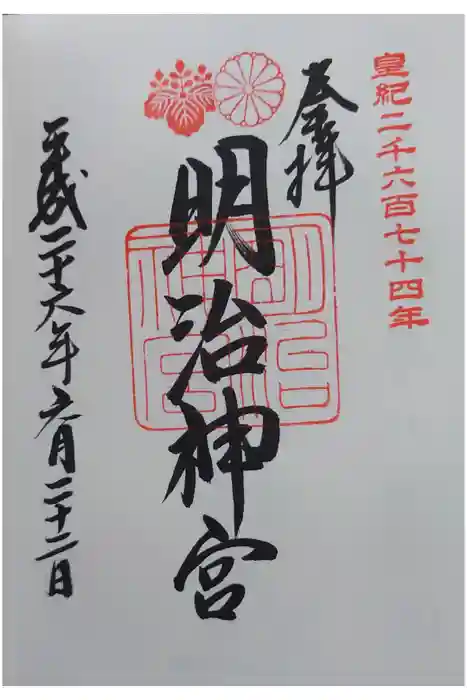 皇紀二千六百七十四年
奉拝
明治神宮
明治神宮
平成二十六年六月二十二日